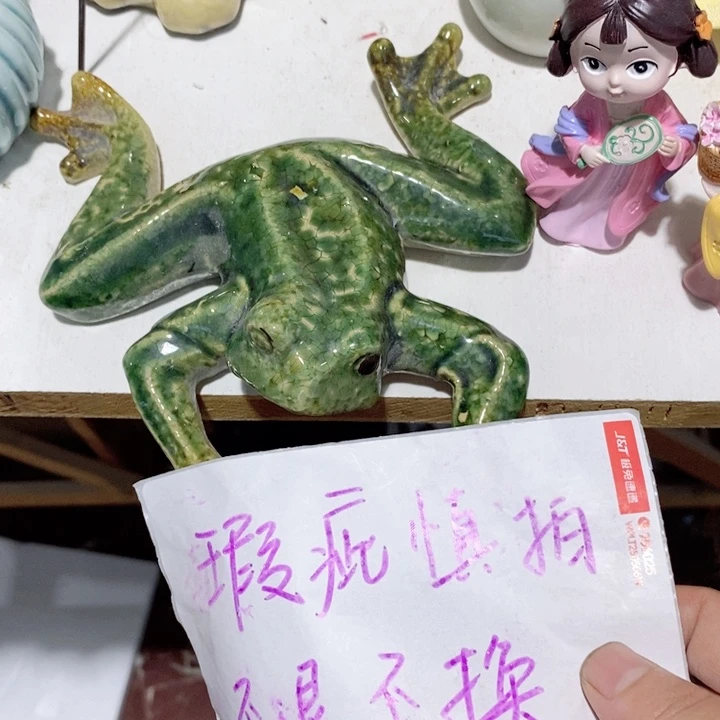 J&T 极兔速递
瑕疵慎拍
不退不换